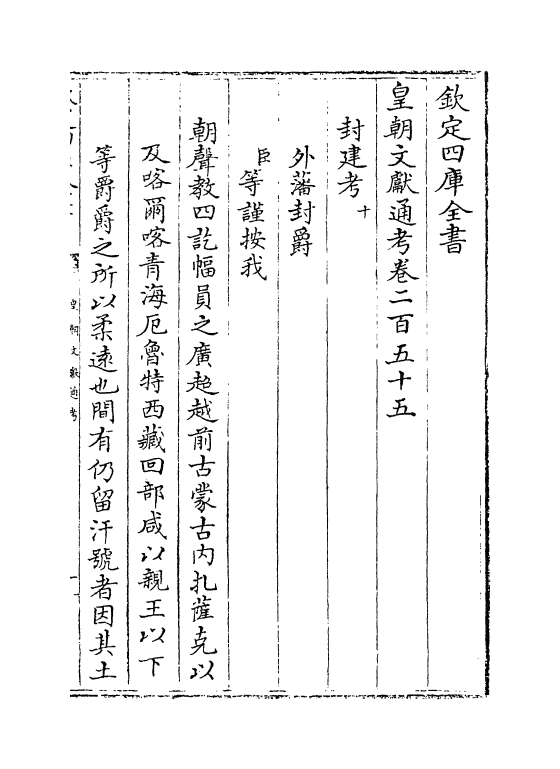 欽定四庫全書
皇朝文獻通考卷二百五十五
封建考十
外藩封爵
臣等謹按我
朝聲教四訖幅員之廣超越前古蒙古内扎薩克以
及喀爾喀青海厄魯特西藏回部咸以親王以下
等爵爵之所以柔遠也間有仍留汗號者因其土
皇朝文獻通考
一